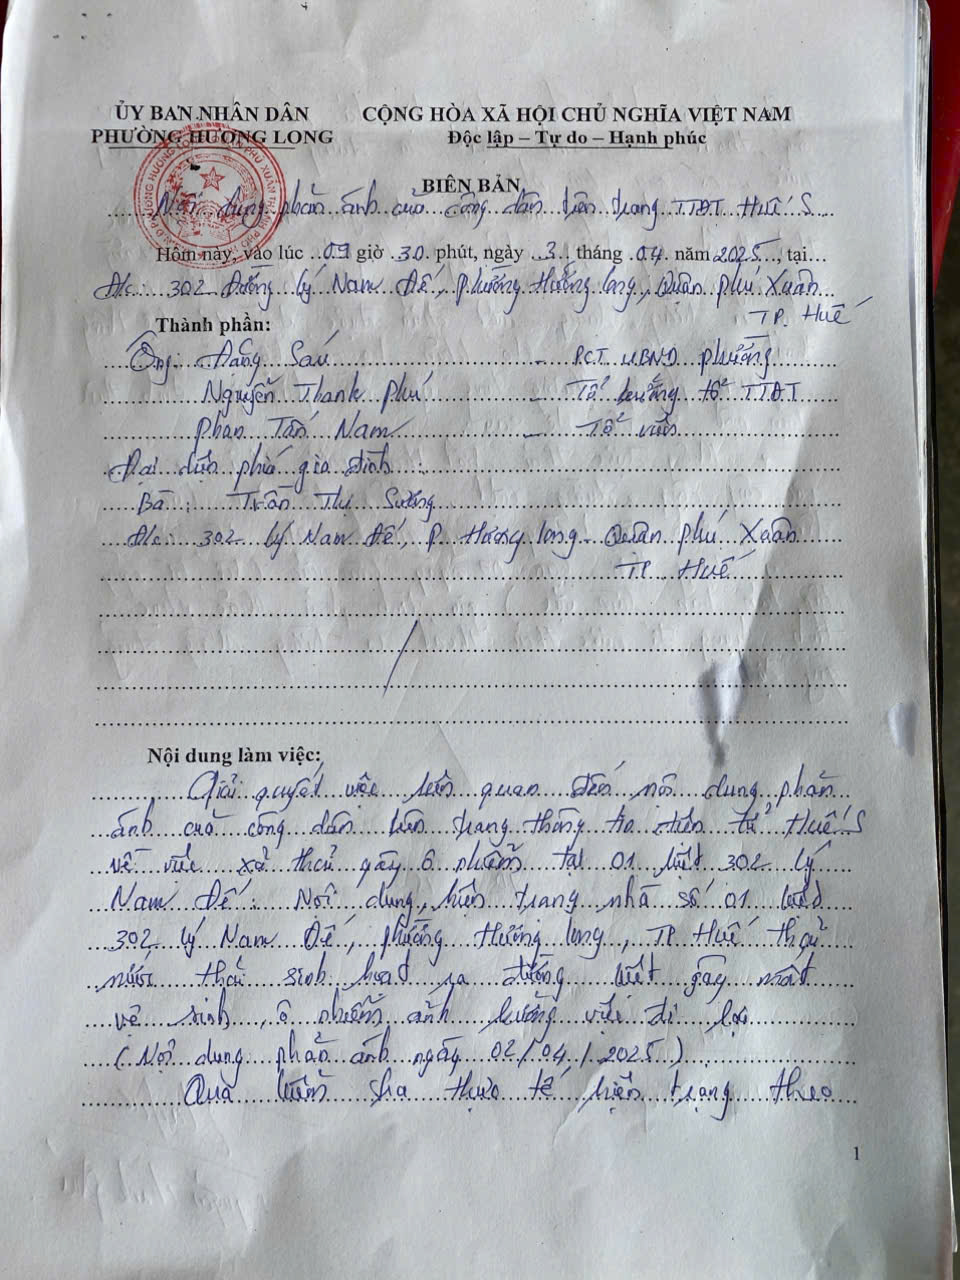 ỦY BAN NHÂN DÂN
PHƯỜNG HƯƠNG LONG
CỘNG HÒA XÃ HỘI CHỦ NGHĨA VIỆT NAM
Độc lập – Tự do – Hạnh phúc
BIÊN BẢN
Nội dung phản ánh của công dân trên trang TTĐT Huế S
Hôm nay, vào lúc 09 giờ 30 phút, ngày 3 tháng 04 năm 2025, tại
Đ/c: 302 Đường Lý Nam Đế, Phường Hương Long, Quận Phú Xuân
TP. Huế
Thành phần:
Ông: Đặng Sáu - PCT UBND phường
Nguyễn Thanh Phú Tổ trưởng tổ TTĐT
Phan Tấn Nam - Tổ viên
Đại diện phía gia đình
Bà: Trần Thị Sương
Đ/c: 302 Lý Nam Đế, P. Hương Long - Quận Phú Xuân
TP Huế
Nội dung làm việc:
Giải quyết việc liên quan đến nội dung phản
ánh của công dân trên trang thông tin điện tử Huế S
về việc xả thải gây ô nhiễm tại 01 kiệt 302 Lý
Nam Đế: Nội dung, hiện trạng nhà số 01 kiệt
302 Lý Nam Đế, phường Hương Long, TP Huế thải
nước thải sinh hoạt ra đường kiệt gây mất
vệ sinh, ô nhiễm ảnh hưởng việc đi lại
(Nội dung phản ánh ngày 02/04/2025)
Qua kiểm tra thực tế, hiện trạng theo
1